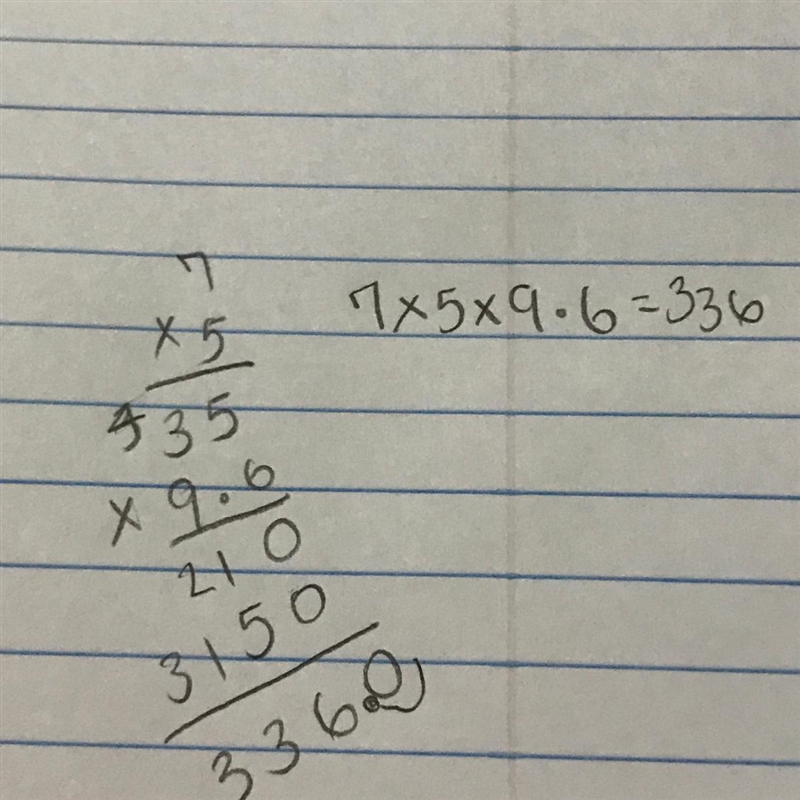 7
× 5
35
× 9.6
210
3150
336.0
7×5×9.6=336